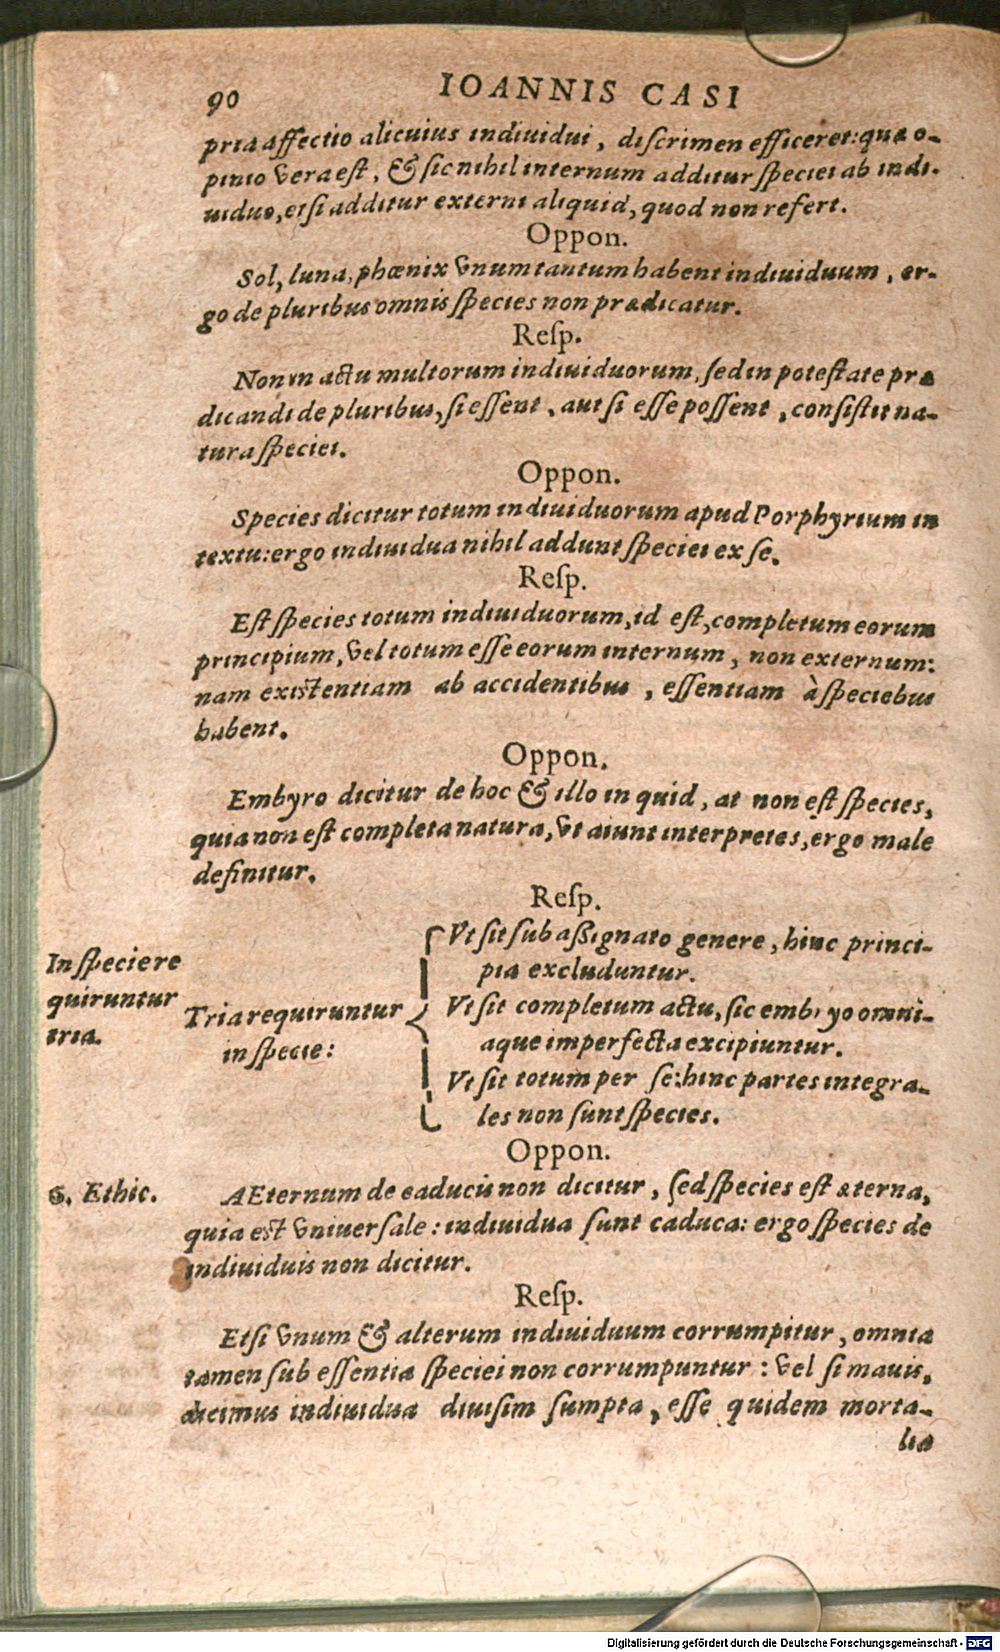 90 IOANNIS CASI
pria affectio alicuius indiuidui, diſcrimen efficeret: quæ o-
pinio vera eſt, & ſic nihil internum additur ſpeciei ab indi-
uiduo, etſi additur externi aliquid, quod non refert.
Oppon.
Sol, luna, phœnix vnum tantum habent indiuiduum, er-
go de pluribus omnis ſpecies non prædicatur.
Reſp.
Non in actu multorum indiuiduorum, ſed in poteſtate præ
dicandi de pluribus, ſi eſſent, aut ſi eſſe poſſent, conſiſtit na-
tura ſpeciei.
Oppon.
Species dicitur totum indiuiduorum apud Porphyrium in
textu: ergo indiuidua nihil addunt ſpeciei ex ſe.
Reſp.
Eſt ſpecies totum indiuiduorum, id eſt, completum eorum
principium, vel totum eſſe eorum internum, non externum:
nam exiſtentiam ab accidentibus, eſſentiam à ſpeciebus
habent.
Oppon.
Embyro dicitur de hoc & illo in quid, at non eſt ſpecies,
quia non eſt completa natura, vt aiunt interpretes, ergo male
definitur.
Reſp.
In ſpecie re
quiruntur
tria.
Tria requiruntur
in ſpecie:
Vt ſit ſub aßignato genere, hinc princi-
pia excluduntur.
Vt ſit completum actu, ſic embryo omni-
aque imperfecta excipiuntur.
Vt ſit totum per ſe: hinc partes integra-
les non ſunt ſpecies.
Oppon.
6. Ethic.
AEternum de caducis non dicitur, ſed ſpecies eſt æterna,
quia eſt vniuerſale: indiuidua ſunt caduca: ergo ſpecies de
indiuiduis non dicitur.
Reſp.
Etſi vnum & alterum indiuiduum corrumpitur, omnia
tamen ſub eſſentia ſpeciei non corrumpuntur: vel ſi mauis,
dicimus indiuidua diuiſim ſumpta, eſſe quidem morta-
lia
Digitalisierung gefördert durch die Deutsche Forschungsgemeinschaft - DFG